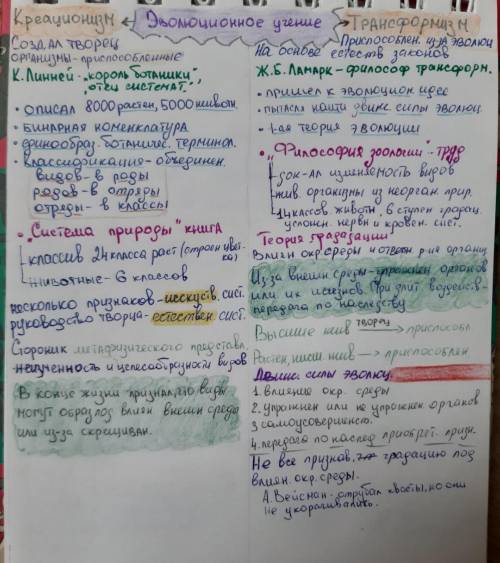 Креационизм ← Эволюционное учение → Трансформизм
Создал творец
организмы - приспособленные
К. Линней - "король ботаники",
"отец системат."
• описал 8000 растен, 5000 животн.
• бинарная номенклатура
• единообраз. ботанич. терминол.
• классификация - объединен.
видов - в роды
родов - в отряды
отряды - в классы
• "Система природы" книга
классиф 24 класса раст (строен цвет-
ка)
животные - 6 классов
несколько признаков - искуств. сист.
руководство творца - естествен. сист.
Стороник метафизического представл.
неизменность и целесообразность видов
В конце жизни признал, что виды
могут образоват влиян внешн среды
или из-за скрещиван.
Приспособлен. из-за эволюц
На основе естеств законов
Ж.Б. Ламарк - философ трансформ.
• пришел к эволюцион идее
• пытался найти движ. силы эволюц.
• 1-ая теория эволюции
• "Философия зоологии" - труд
док-ал изменяемость видов
жив. организмы из неорган прир.
14 классов животн, 6 ступен градац.
усложн. нервн и кровен. сист.
Теория градации
Влиян окр. среды и р-ия органи
Из-за внешн. среды - упражнен органов
или их неупов При длит воздейств-
передача по наследству
Высшие жив творец → приспособл
Растен, низш жив → приспособлен
Движ. силы эволюц.
1. влияние окр. среды
2. упражнен или не упражнен органов
3 самоусовершенст.
4. передача по наслед приобрет. призн.
Не все признав. градацию под
влиян. окр. среды.
А. Вейсман - отрубал хвосты, но они
не укорачивались.